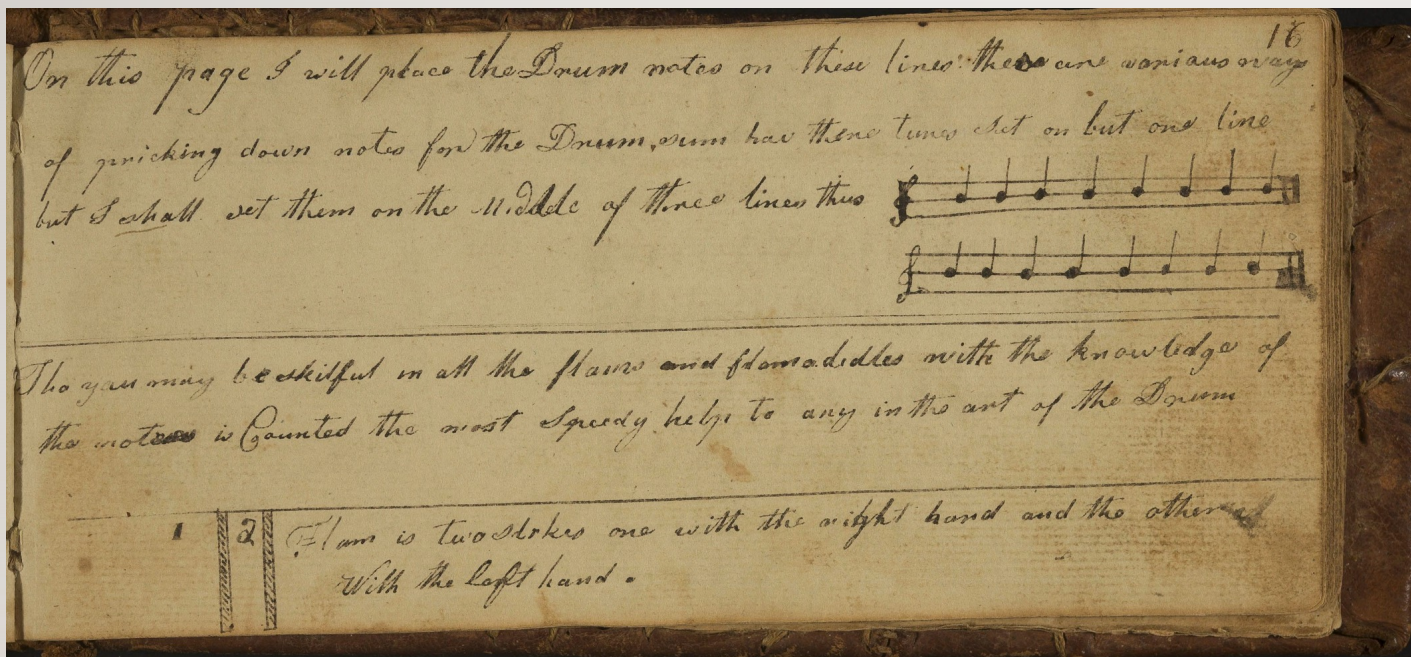 16
On this page I will place the Drum notes on these lines there are various ways
of pricking down notes for the Drum, sum hav there tunes set on but one line
but I shall set them on the Middle of three lines thus
Tho you may be skilful in all the flams and flamadidles with the knowledge of
the notes is Counted the most Speedy help to any in the art of the Drum
1 2 Flam is two strkes one with the right hand and the other
With the left hand.